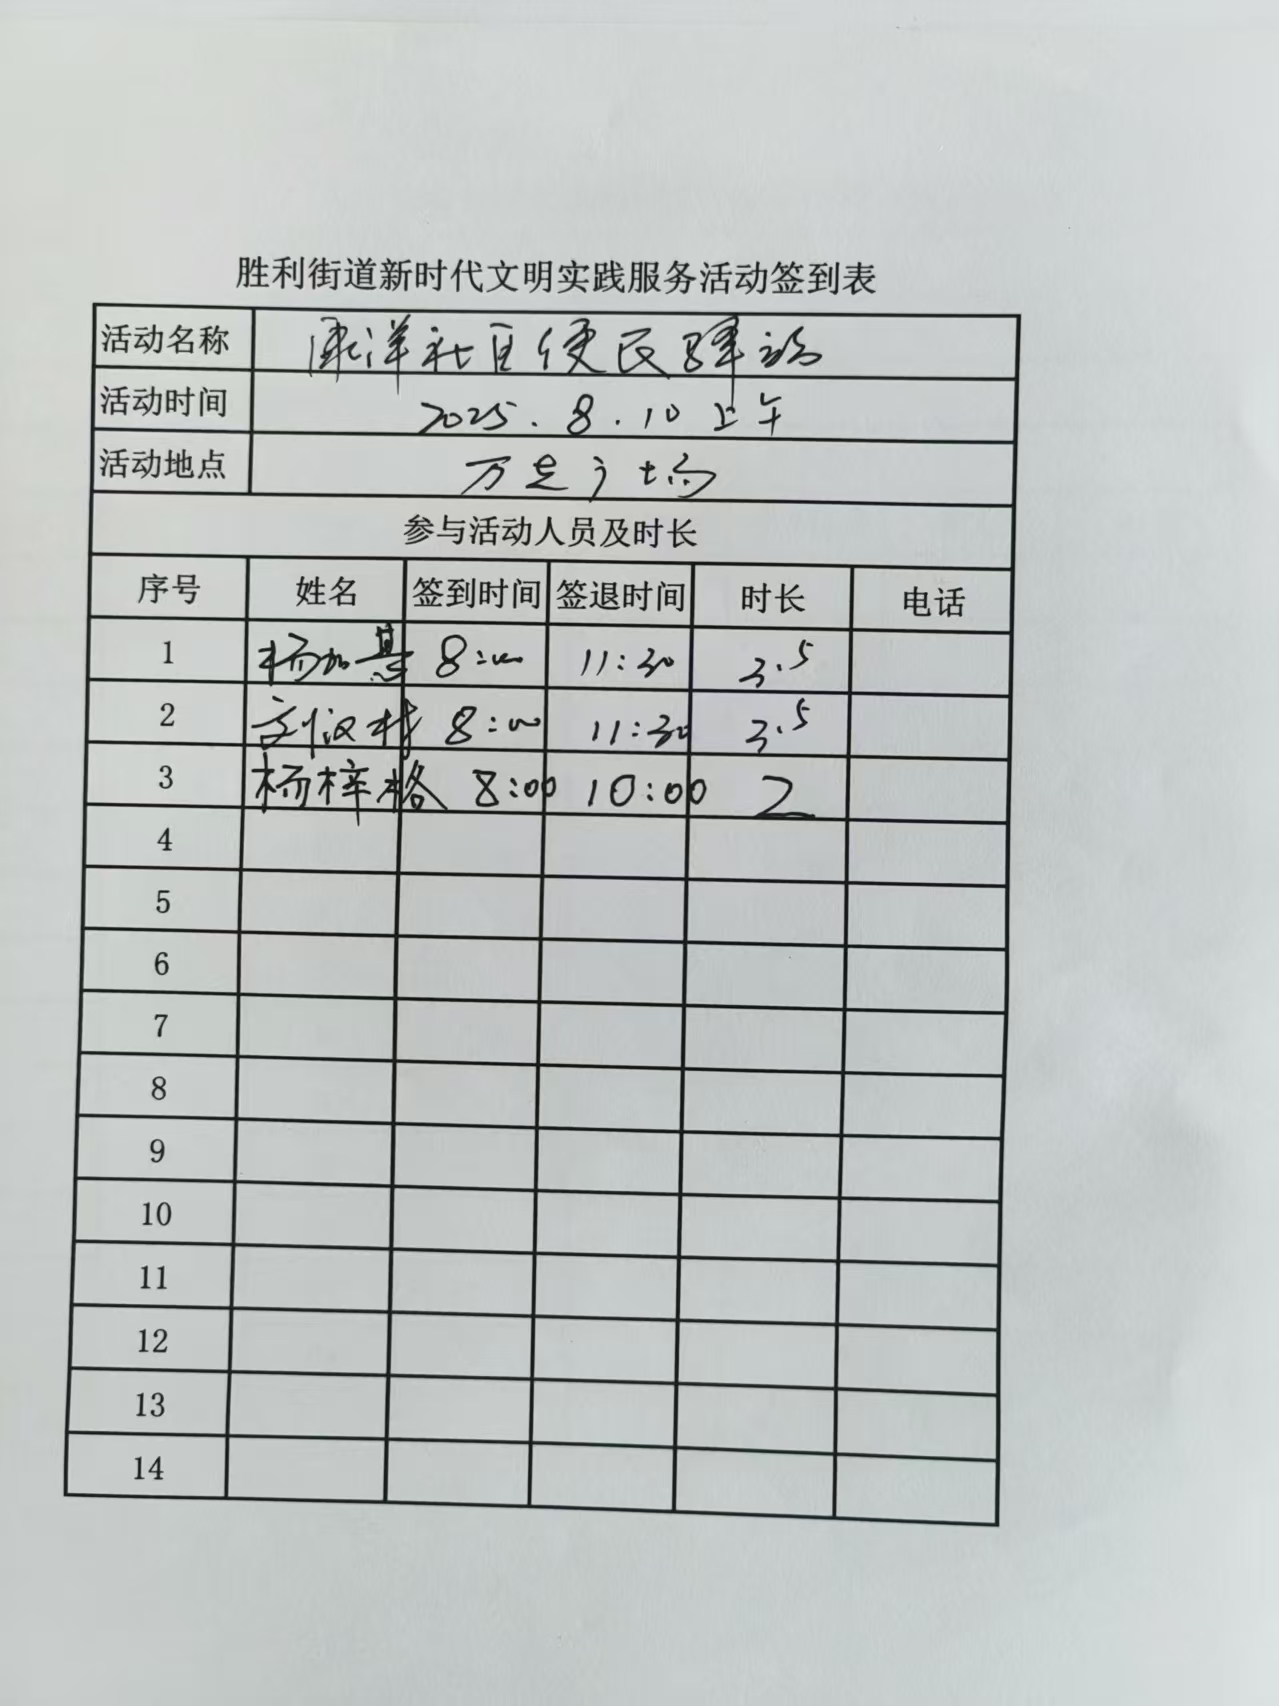 胜利街道新时代文明实践服务活动签到表
活动名称 康洋社区便民驿站
活动时间 2025.8.10上午
活动地点 万达广场
参与活动人员及时长
序号 姓名 签到时间 签退时间 时长 电话
1 杨加慧 8:00 11:30 3.5
2 刘汉村 8:00 11:30 3.5
3 杨梓格 8:00 10:00 2
4
5
6
7
8
9
10
11
12
13
14